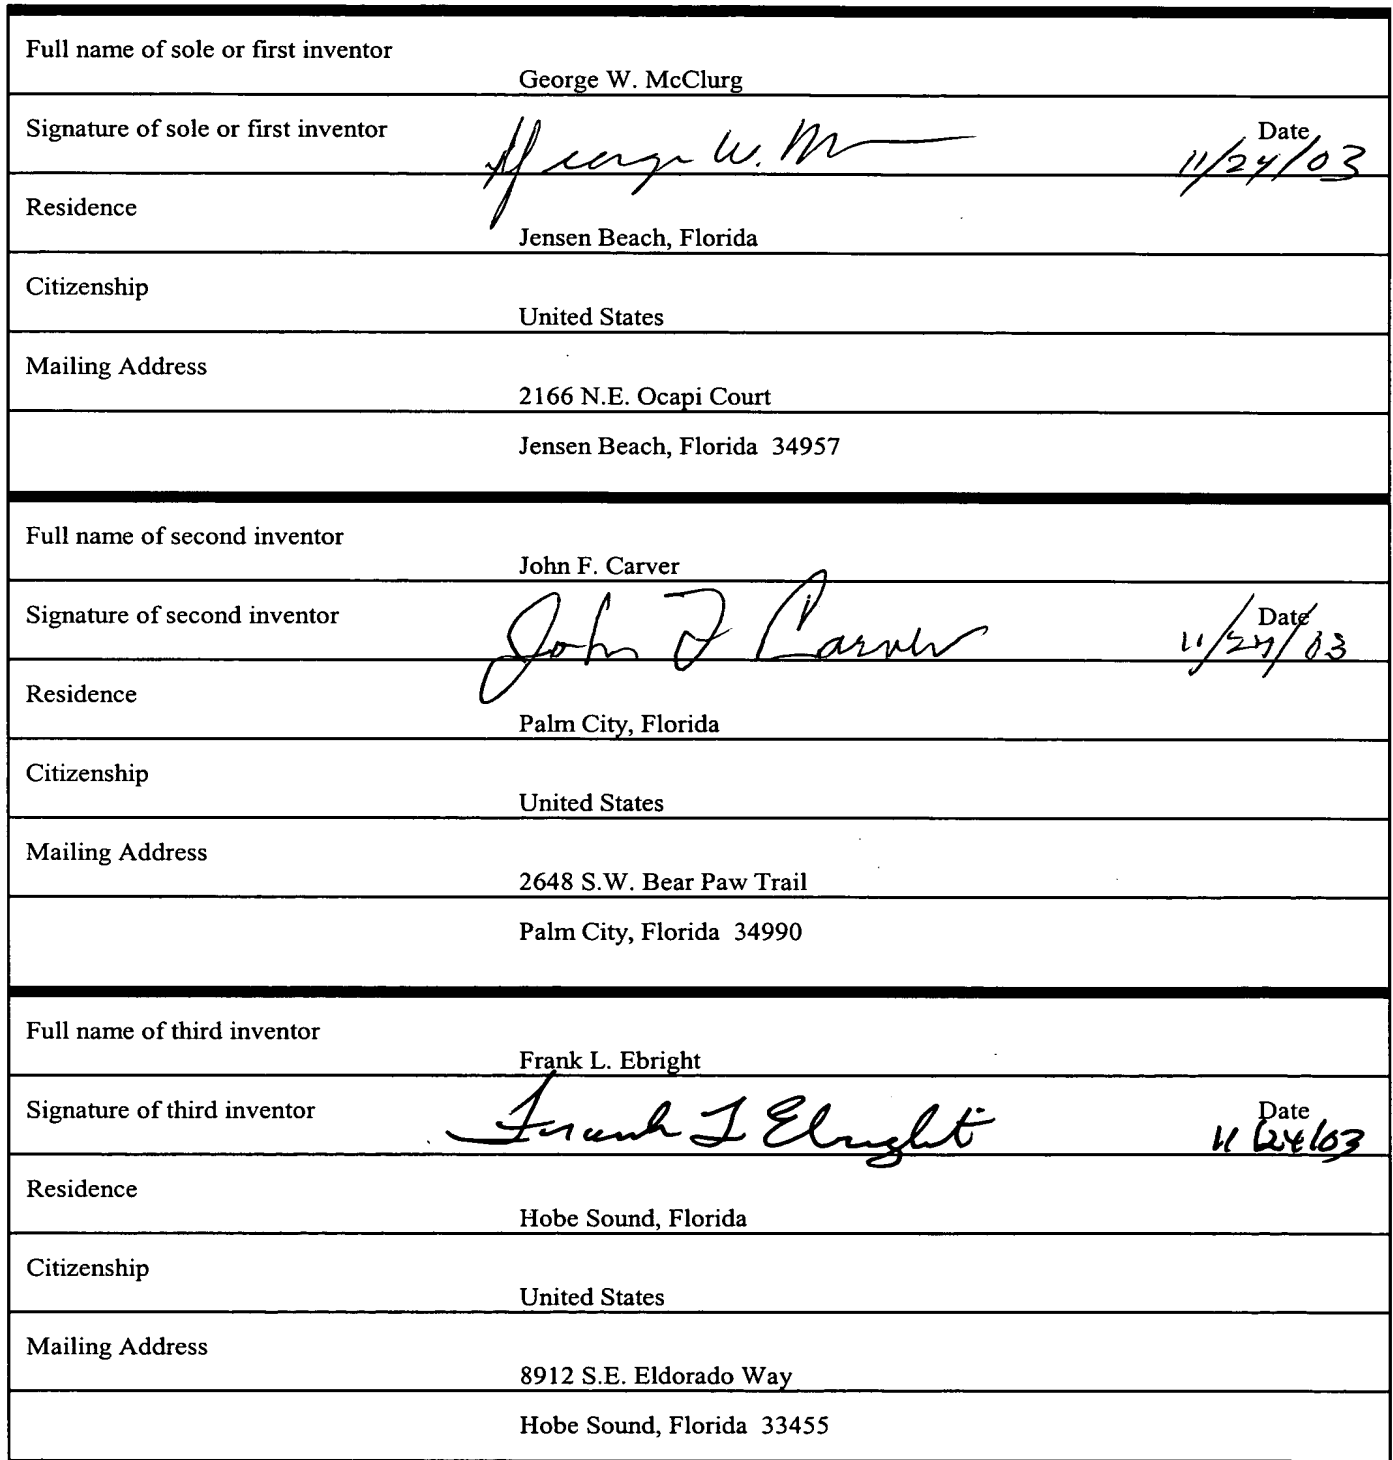 Full name of sole or first inventor
George W. McClurg
Signature of sole or first inventor George W. M Date
11/24/03
Residence
Jensen Beach, Florida
Citizenship
United States
Mailing Address
2166 N.E. Ocapi Court
Jensen Beach, Florida 34957
Full name of second inventor
John F. Carver
Signature of second inventor John F Carver Date
11/24/03
Residence
Palm City, Florida
Citizenship
United States
Mailing Address
2648 S.W. Bear Paw Trail
Palm City, Florida 34990
Full name of third inventor
Frank L. Ebright
Signature of third inventor Frank L Ebright Date
11/24/03
Residence
Hobe Sound, Florida
Citizenship
United States
Mailing Address
8912 S.E. Eldorado Way
Hobe Sound, Florida 33455